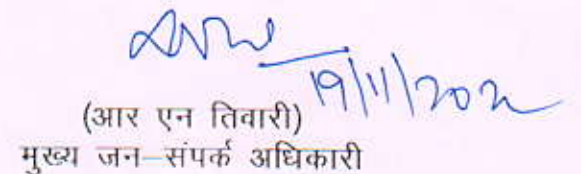 19/11/202
(आर एन तिवारी)
मुख्य जन–संपर्क अधिकारी